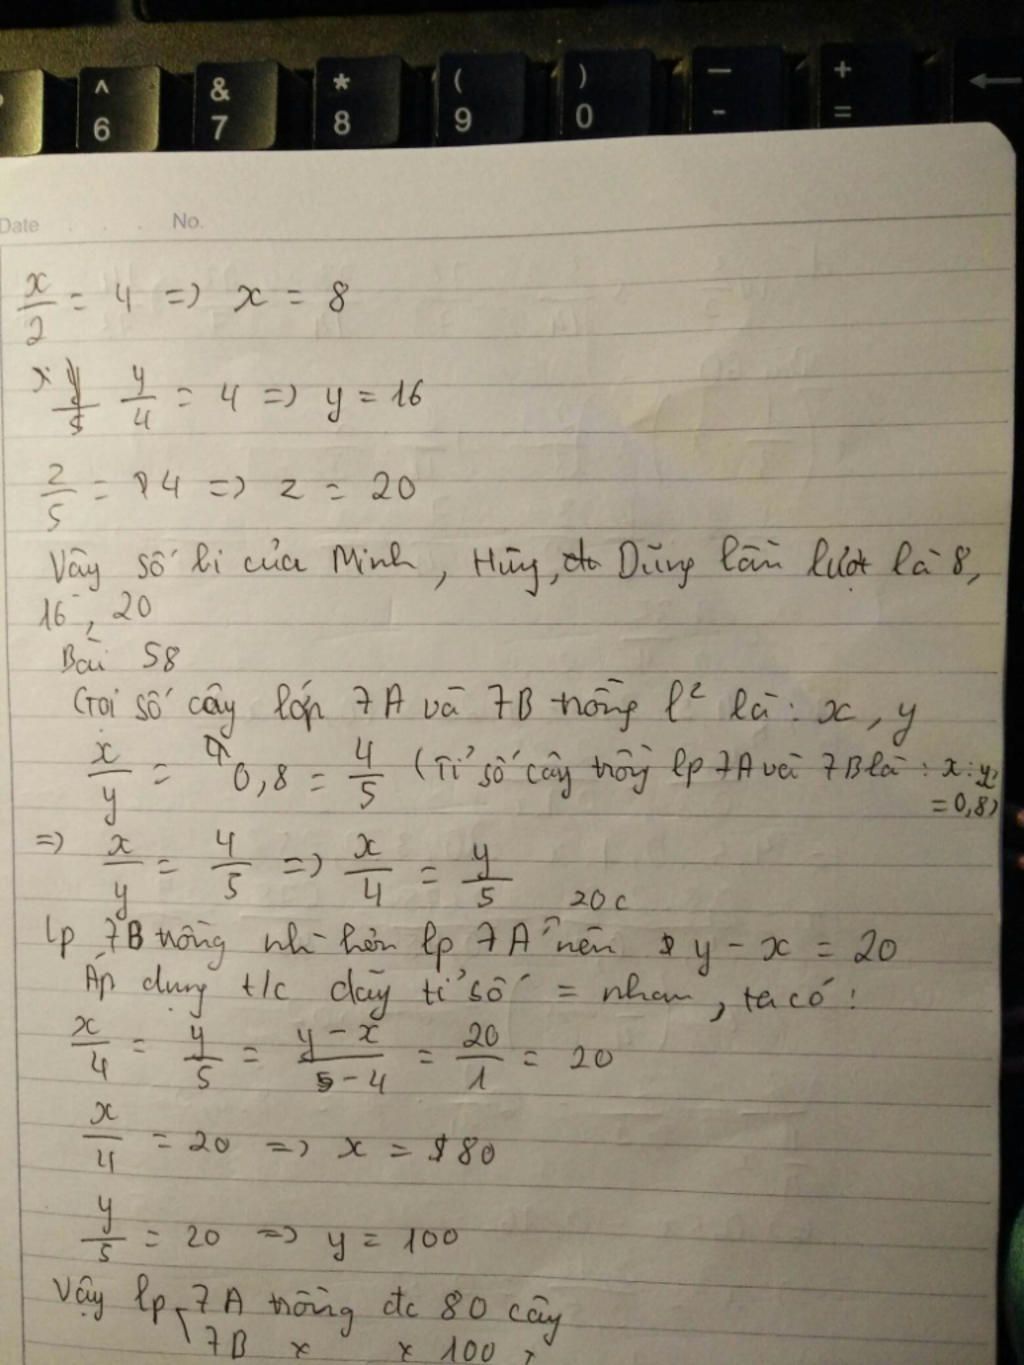 ^ & * ( ) — +
6 7 8 9 0 - = ←
Date No.
x/2 = 4 => x = 8
y/4 = 4 => y = 16
z/5 = 4 => z = 20
Vậy số bi của Minh, Hùng, Dũng lần lượt là 8,
16, 20
Bài 58
Gọi số cây lớp 7A và 7B trồng l² là: x, y
x/y = 0,8 = 4/5 (Tỉ số cây trồng lp 7A và 7B là: x:y
= 0,8)
=> x/y = 4/5 => x/4 = y/5
20c
lp 7B trồng nh` hơn lp 7A nên y - x = 20
Áp dụng t/c dãy tỉ số = nhau, ta có:
x/4 = y/5 = y - x/5 - 4 = 20/1 = 20
x/4 = 20 => x = 80
y/5 = 20 => y = 100
Vậy lp 7A trồng đc 80 cây
7B x x 100 x